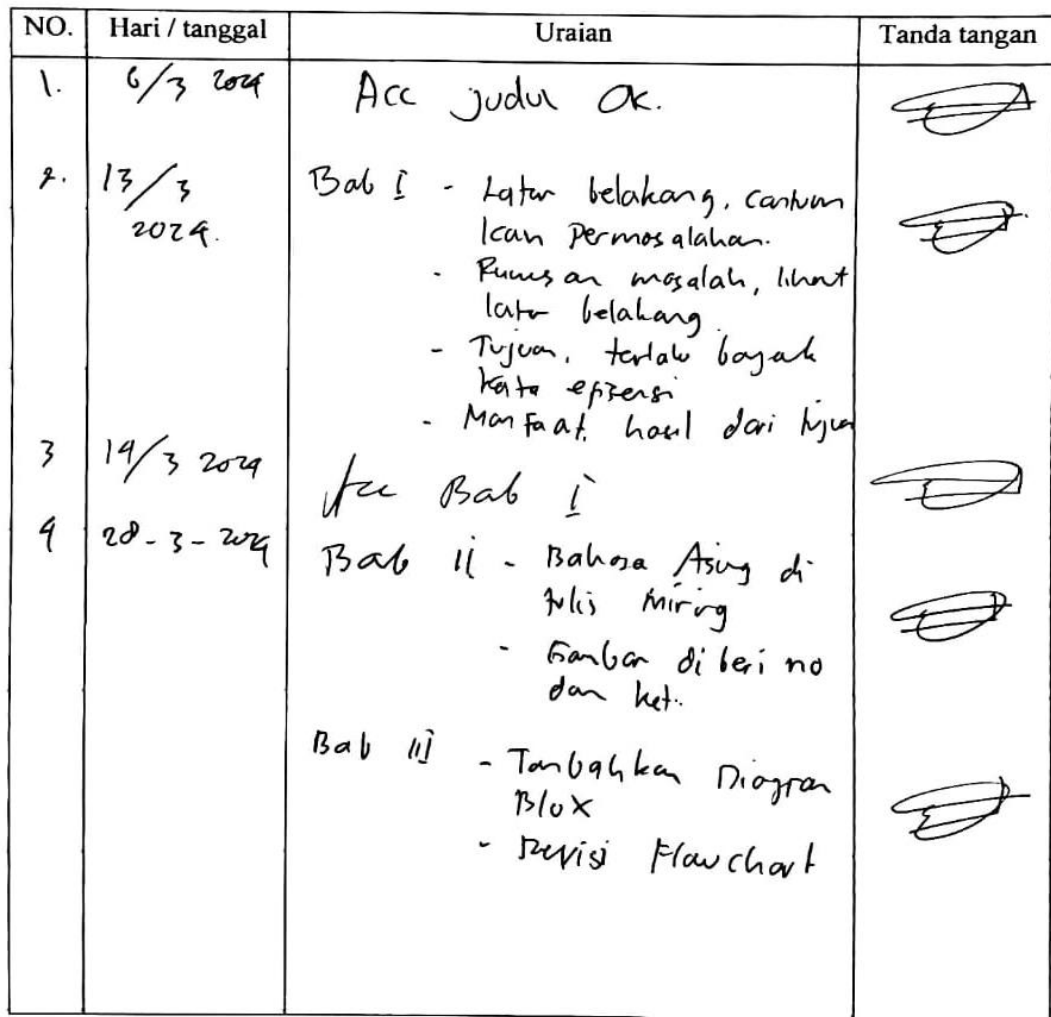 NO. Hari / tanggal Uraian Tanda tangan
1. 6/3 2024 Acc judul Ok.
2. 13/3 Bab I - Latar belakang, cantum
2024. kan Permasalahan.
- Rumusan masalah, lihat
latar belakang
- Tujuan, terlalu bayak
kata efisensi
- Manfaat, hasil dari tujuan
3 14/3 2024 Acc Bab I
4 28-3-2024 Bab II - Bahasa Asing di
tulis miring
- Gambar di beri no
dan ket.
Bab III - Tambahkan Diagram
Blox
- Revisi Flowchart